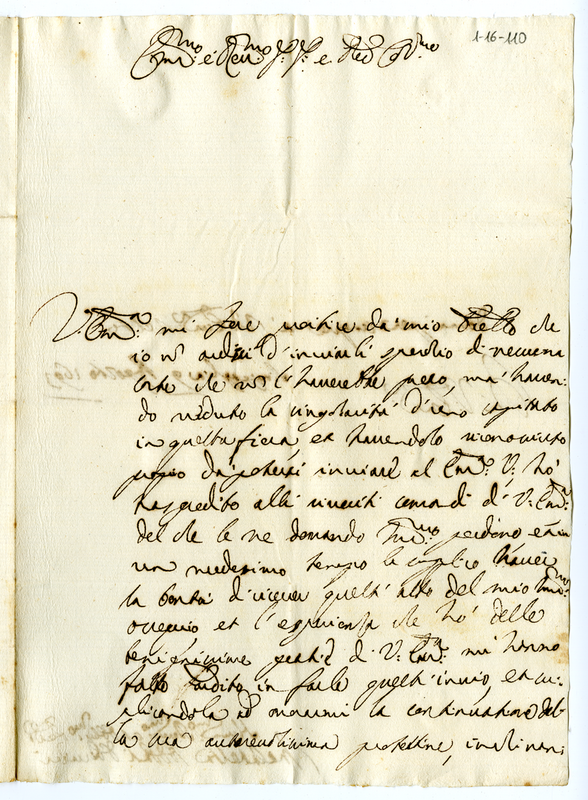 1-16-110
Em.mo e Rev.mo S.r P. e
V. Em.a mi fece scrivere da mio che
io non ardissi d'inviarli specchio di nessuna
sorte che non l'haverebbe preso, ma haven-
do veduto la singolarità d'uno capitato
in questa fiera, et havendolo riconosciuto
degno da potersi inviare al Em.a V. hò
trasgredito alli riveriti comandi di V. Em.a
del che le ne domando perdono et in
un medesimo tempo la supplico haver
la bontà d' quest' atto del mio
ossequio et l'esperienza che hò delle
benignissime gratie di V. Em.a mi hanno
fatto ardito in farle quest' invio, et su-
plicandola ad la continuatione del-
la sua autorevolissima protettione, inclinan-